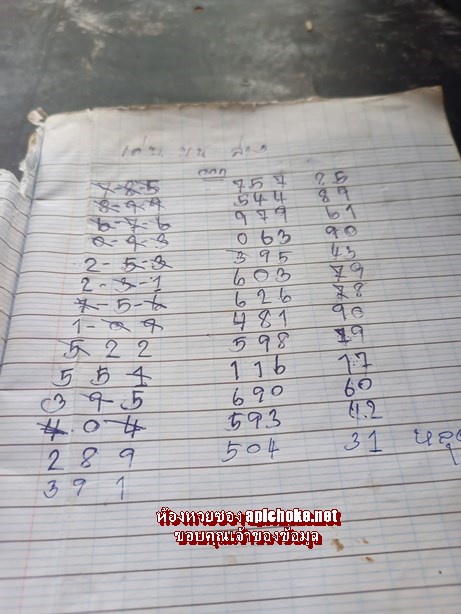 เด่น บน ล่าง
7-8-5 757 25
8-9-9 544 89
6-7-6 979 61
0-9-3 063 90
2-5-3 395 43
2-3-1 603 79
7-5-6 626 78
1-0-9 481 90
5 2 2 598 19
5 5 1 116 17
3 9 5 690 60
4 0 4 593 42
2 8 9 504 31
3 9 1
ห้องหวยซอง apichoke.net
ขอบคุณเจ้าของข้อมูล